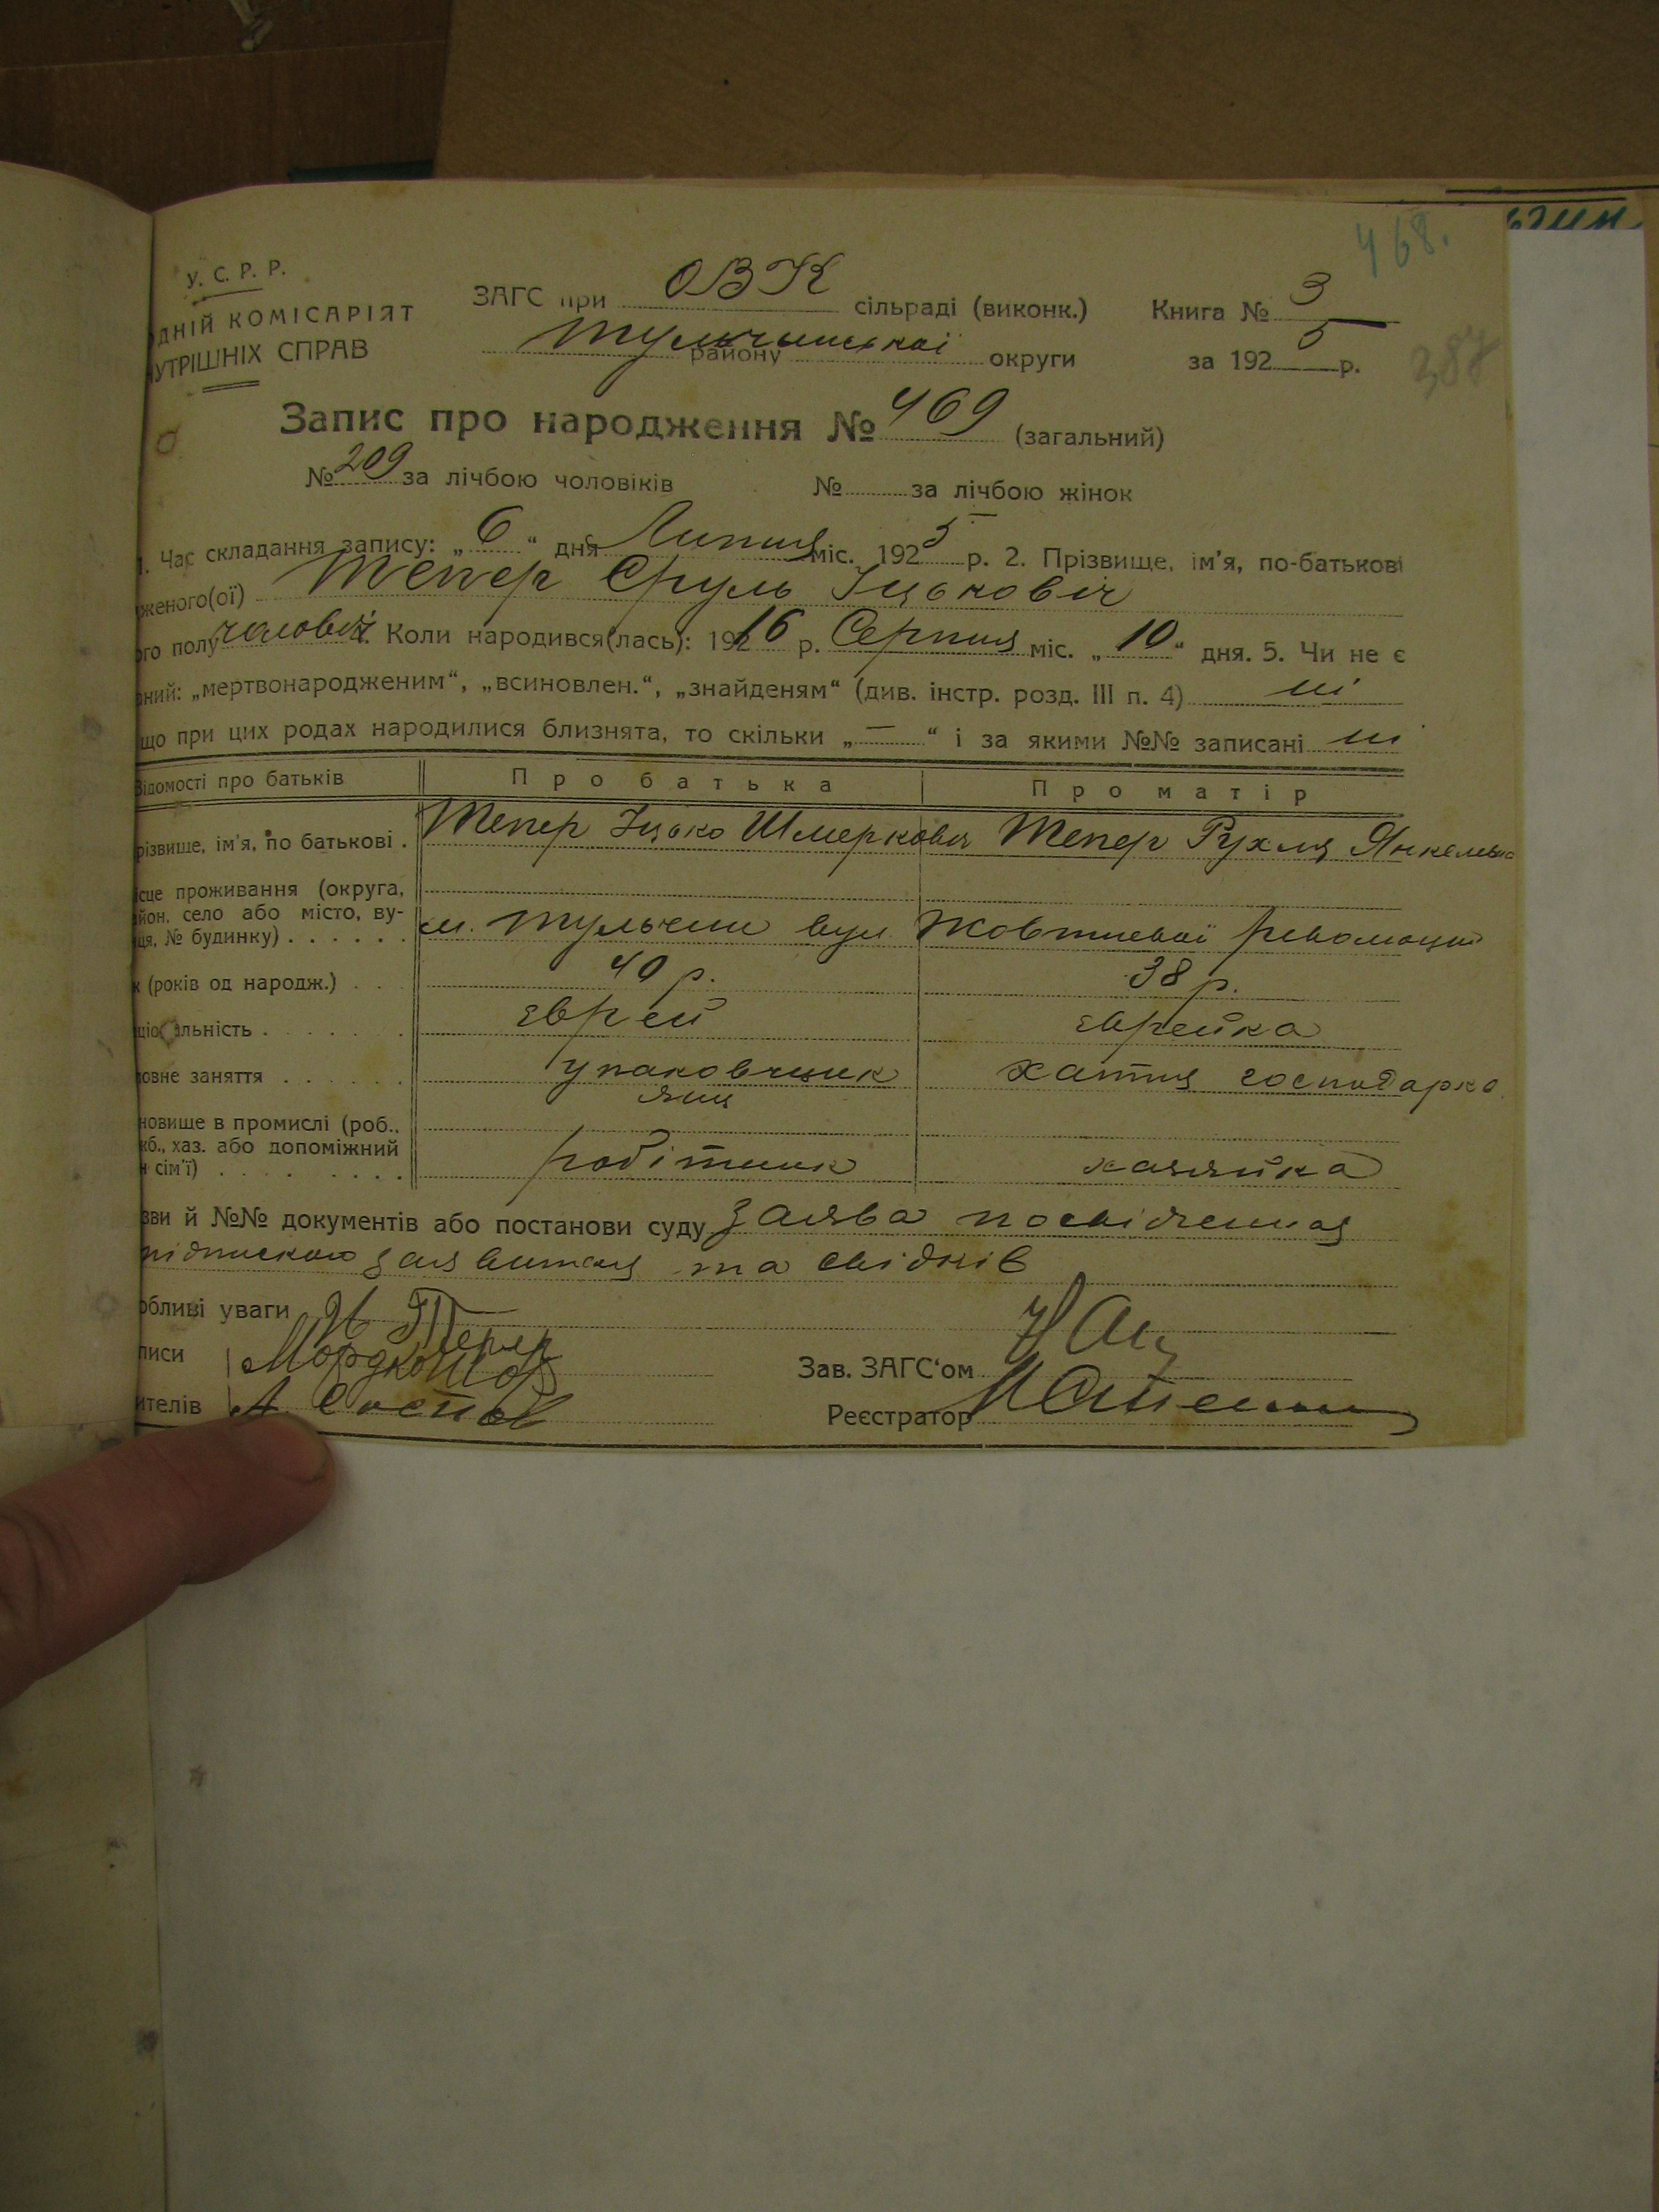 468.
У. С. Р. Р.
ДНІЙ КОМІСАРІЯТ
УТРІШНІХ СПРАВ
ЗАГС при ОВК сільраді (виконк.) Книга № 3
Тульчинської району округи за 1925 р.
387
Запис про народження № 469 (загальний)
№ 209 за лічбою чоловіків № за лічбою жінок
1. Час складання запису: „6“ дня Липня міс. 1925 р. 2. Прізвище, ім'я, по-батькові
женого(ої) Тепер Сруль Іцькович
ого полу чоловіч. Коли народився(лась): 19216 р. Серпня міс. „10“ дня. 5. Чи не є
ний: „мертвонародженим“, „всиновлен.“, „знайденям“ (див. інстр. розд. III п. 4) ні
що при цих родах народилися близнята, то скільки „—“ і за якими №№ записані ні
Відомості про батьків Про батька Про матір
різвище, ім'я, по батькові . Тепер Іцько Шмеркович Тепер Рухля Янкельвн
ісце проживання (округа,
йон, село або місто, ву-
ця, № будинку) . . . . . . м. Тульчин вул. Жовтневої революції
к (років од народж.) . . 40 р. 38 р.
ціональність . . . . . . єврей єврейка
овне заняття . . . . . . упаковщик хатня господарка
яиц
новище в промислі (роб.,
жб., хаз. або допоміжний
н сім'ї) . . . . . . . . робітник хазяйка
зви й №№ документів або постанови суду заява посвідчення
підпискою заявителя та свідків
обливі уваги И Тепер
писи
Зав. ЗАГС'ом
ителів А.
Реєстратор